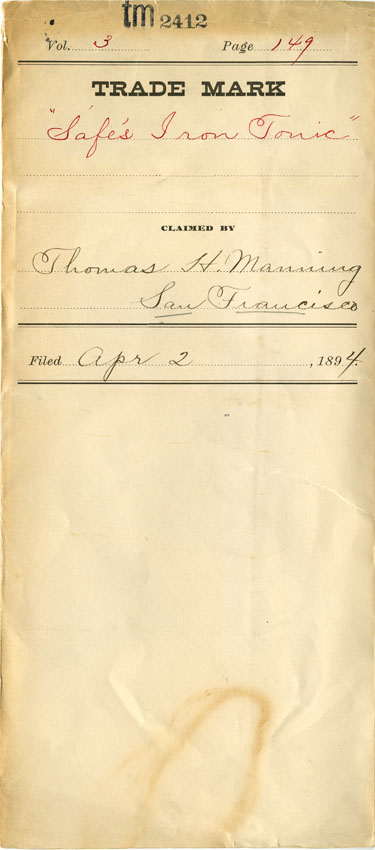 tm 2412
Vol. 3 Page 149
TRADE MARK
"Safe's Iron Tonic"
CLAIMED BY
Thomas H. Manning
San Francisco
Filed Apr 2, 1894.